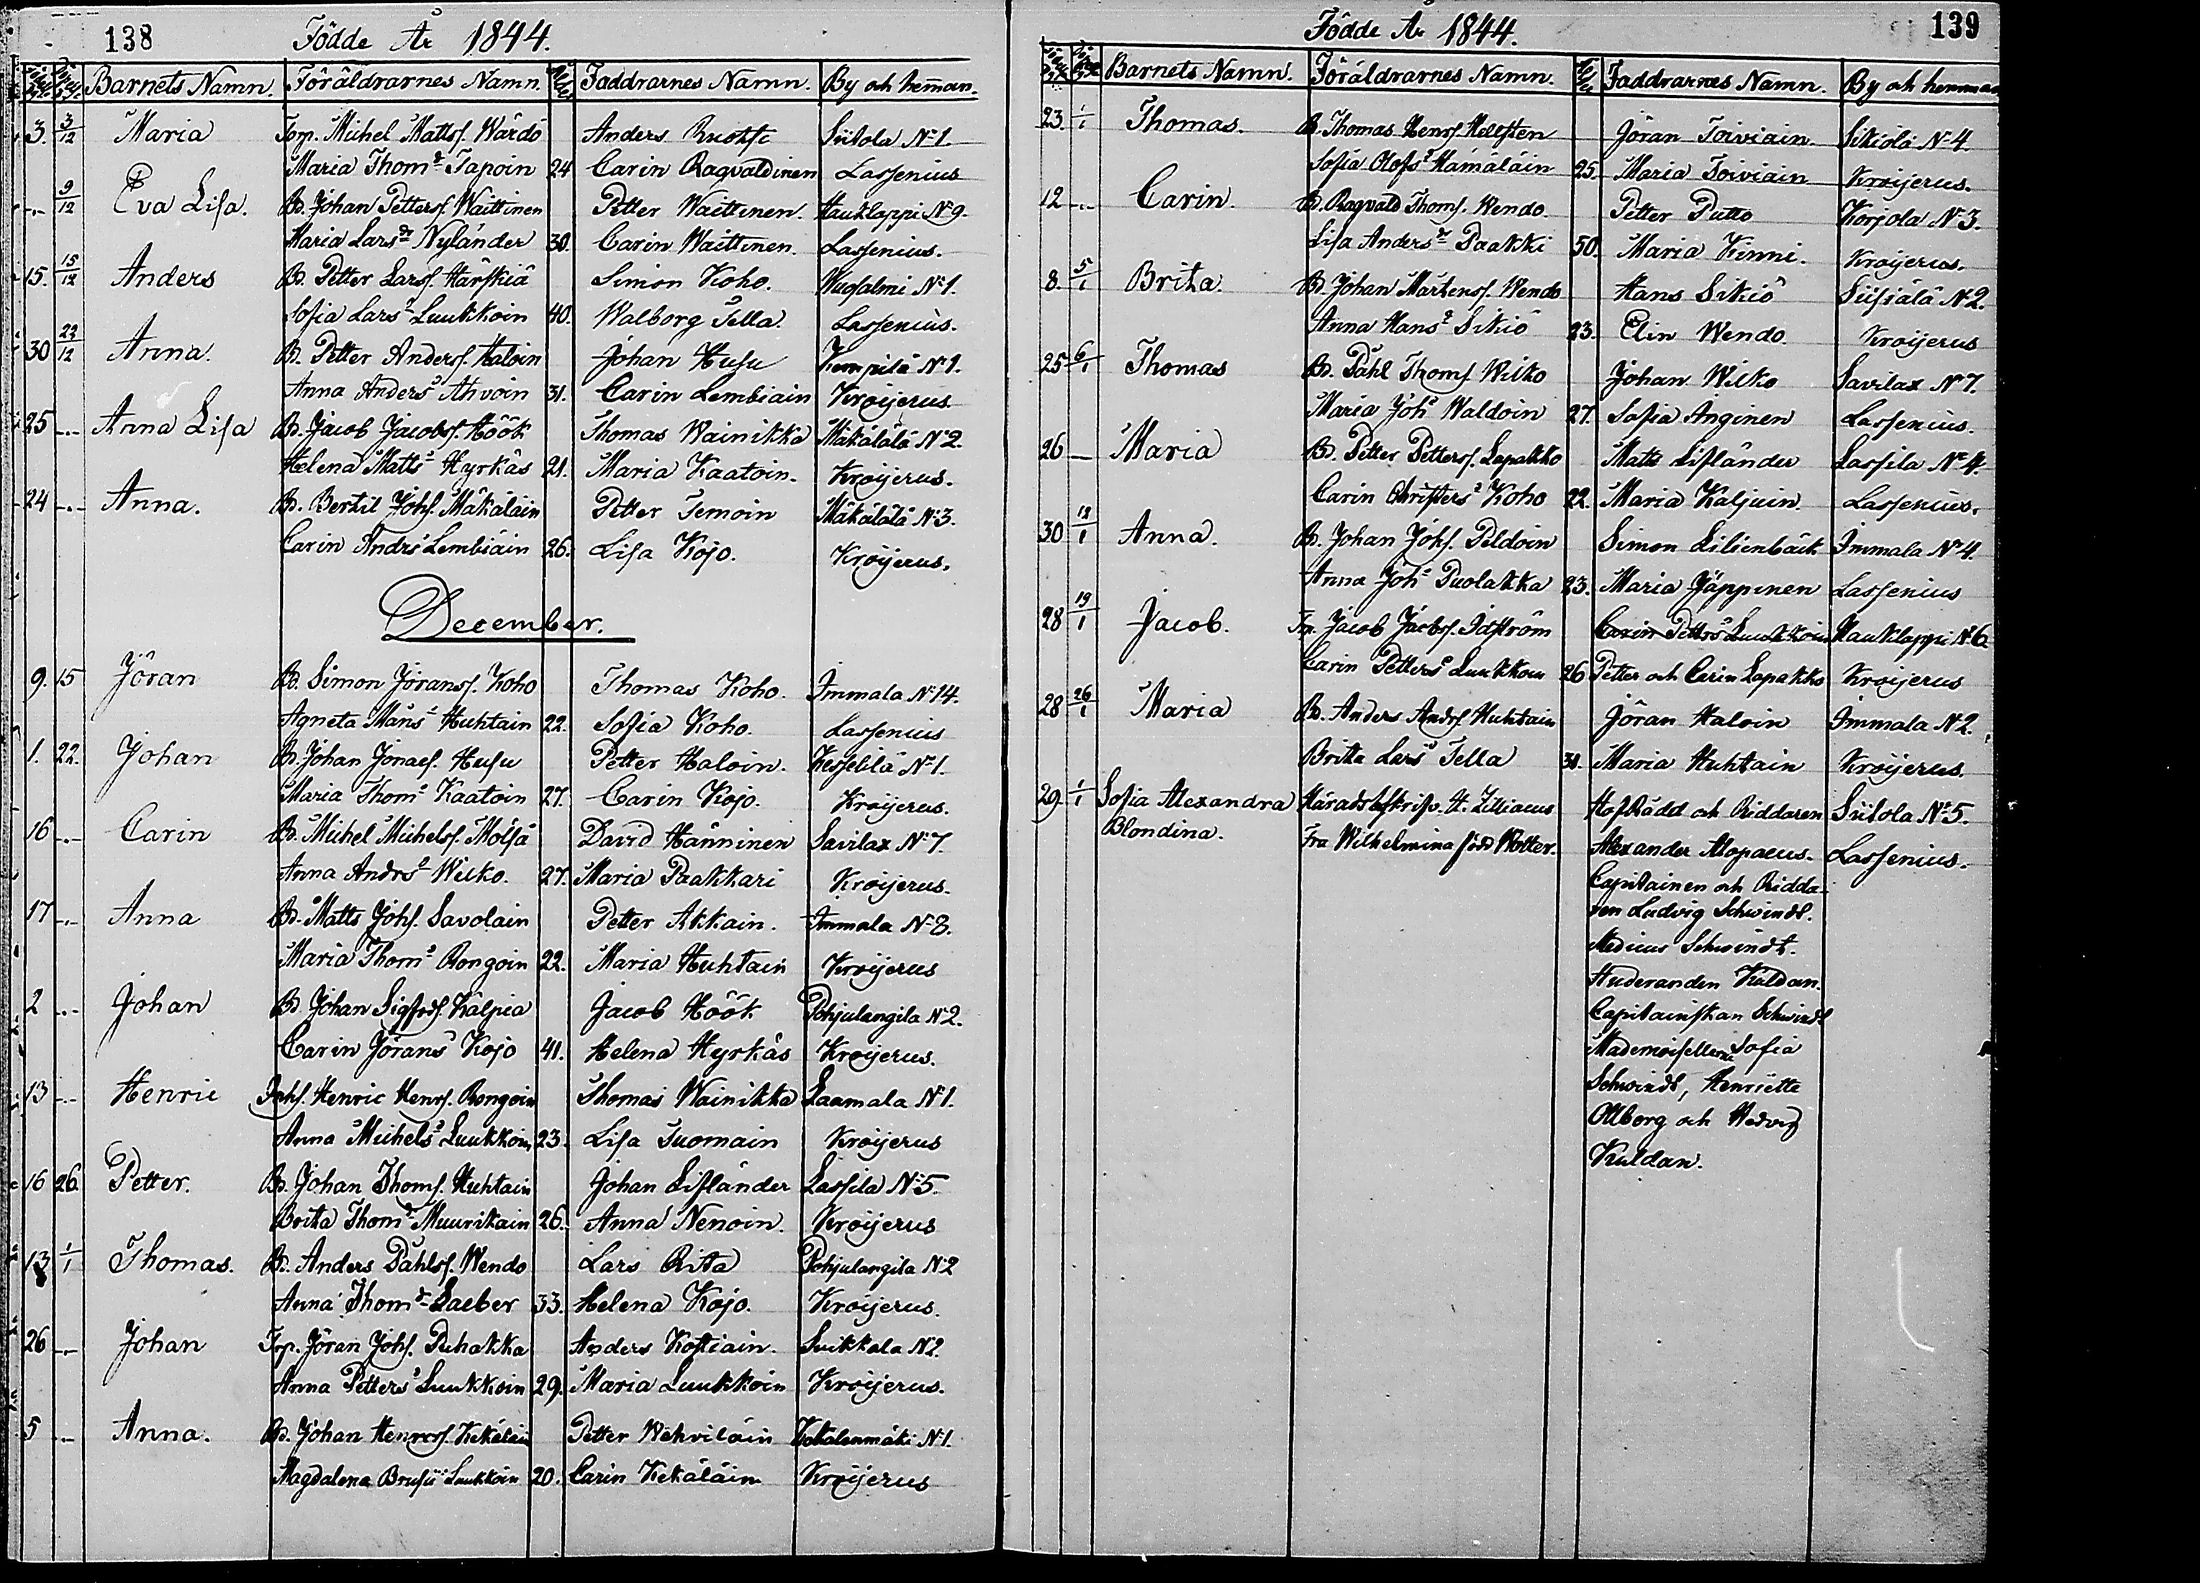 138 Födde År 1844.
Barnets Namn. Föräldrarnes Namn. Faddrarnes Namn. By och heman.
3. 3/12 Maria Torp. Michel Mattsf. Wärdö Anders Ruokse Siitola No 1.
Maria Thomsdr Tapoin 24 Carin Ragvaldinen Lassenius
-"- 9/12 Eva Lisa. Bd. Johan Pettersf. Waittinen Petter Waittinen. Hauklappi No 9.
Maria Larsdr Nyländer 30. Carin Waittinen. Lassenius.
15. 15/12 Anders Bd. Petter Larsf. Härskiä Simon Koho. Wuosalmi No 1.
Sofia Larsd Luukkoin 40. Walborg Tella. Lassenius.
30 22/12 Anna. Bd. Petter Andersf. Haloin Johan Husu Kempilä No 1.
Anna Andersd Ahvoin 31. Carin Lembiain Kröijerus.
25 -"- Anna Lisa Bd. Jacob Jacobsf. Höök Thomas Wainikka Mäkälälä No 2.
Helena Mattsd Hyrkäs 21. Maria Kaatoin. Kröijerus.
24 -"- Anna. Bd. Bertil Johsf. Mäkäläin Petter Temoin Mäkälälä No 3.
Carin Andrsd Lembiäin 26. Lisa Kojo. Kröijerus.
December.
9. 15 Jöran Bd. Simon Jöransf. Koho Thomas Koho. Immala No 14.
Agneta Månsd Huhtain 22. Sofia Koho. Lassenius
1. 22. Johan Bd. Johan Jonaef. Husu Petter Haloin. Kesselilä No 1.
Maria Thomsd Kaatoin 27. Carin Kojo. Kröijerus.
16 -"- Carin Bd. Michel Michelsf. Mölsä David Hänninen Savilax No 7.
Anna Andrsd Wilko. 27. Maria Paakkari Kröijerus.
17 -"- Anna Bd. Matts Johsf. Savolain Petter Akkain. Immala No 8.
Maria Thomsd Rongoin 22. Maria Huhtain Kröijerus
2 -"- Johan Bd Johan Sigfrdsf. Kälpiä Jacob Höök Pohjulangila No 2.
Carin Jöransd Kojo 41. Helena Hyrkäs Kröijerus.
13 -"- Henric Inhs. Henric Henrsf. Rongoin Thomas Wainikka Laamala No 1.
Anna Michelsd Luukkoin 23. Lisa Tuomain Kröijerus
16 26. Petter. Bd. Johan Thomsf. Huhtain Johan Lifländer Lassila No 5.
Brita Thomsd Muurikain 26. Anna Nenoin. Kröijerus
13 1/1 Thomas. Bd. Anders Påhlsf. Wendo Lars Rita Pohjulangila No 2
Anna Thomsdr Laeber 33. Helena Kojo. Kröijerus.
26 -"- Johan Trp. Jöran Johsf. Puhakka Anders Kostiain. Suikkala No 2.
Anna Pettersd Luukkoin 29. Maria Luukkoin Kröijerus.
5 -"- Anna. Bd. Johan Henrcsf. Kekäläin Petter Wehviläin No 1.
Magdalena Luukkoin 20. Carin Kekäläin Kröijerus
Födde År 1844. 139
Barnets Namn. Föräldrarnes Namn. Faddrarnes Namn. By och hemman
23. 1/1 Thomas. Bd. Thomas Henrsf. Hellsten Jöran Toiviain. Sikiölä No 4
Sofia Olofsd Hämäläin 25. Maria Toiviain Kröijerus.
12 -"- Carin. Bd. Ragvald Thomsf. Wendo. Petter Putto Korjola No 3.
Lisa Andersdr Paakki 50. Maria Kinni. Kröijerus.
8. 5/1 Brita. Bd. Johan Mårtensf. Wendo Hans Sikiö Siisiälä No 2.
Anna Hansd Sikiö 23. Elin Wendo. Kröijerus
25 6/1 Thomas Bd. Påhl Thomsf. Wilko Johan Wilko Savilax No 7.
Maria Johsd Waldoin 27. Sofia Anginen Lassenius.
26 — Maria Bd. Petter Pettersf. Lapakko Matts Lifländer Lassila No 4.
Carin Christersd Koho 22. Maria Kaljuin. Lassenius.
30 18/1 Anna. Bd. Johan Johsf. Peldoin Simon Lilienbäck Immala No 4.
Anna Johsd Puolakka 23. Maria Jäppinen Lassenius
28 19/1 Jacob. Trp. Jacob Jacobsf. Idström Carin Pettersd Luukkoin Hauklappi No 6.
Carin Pettersd Luukkoin 26 Petter och Carin Lapakko Kröijerus
28 26/1 Maria Bd. Anders Andrsf. Huhtain Jöran Haloin Immala No 2.
Britta Larsd Tella 31. Maria Huhtain Kröijerus.
29. 1/1 Sofia Alexandra Häradsskrifv. H. Zilliacus Hofrådd och Riddaren Siitola No 5.
Blondina. Fru Wilhelmina född Wolter. Alexander Alopaeus. Lassenius.
Capitainen och Ridda-
ren Ludvig Schvindt.
Medicus Schvindt.
Studeranden Kuldan.
Capitainskan Schvindt
Mademoisellerne Sofia
Schvindt, Henriette
Ollborg och Hedvig
Kuldan.